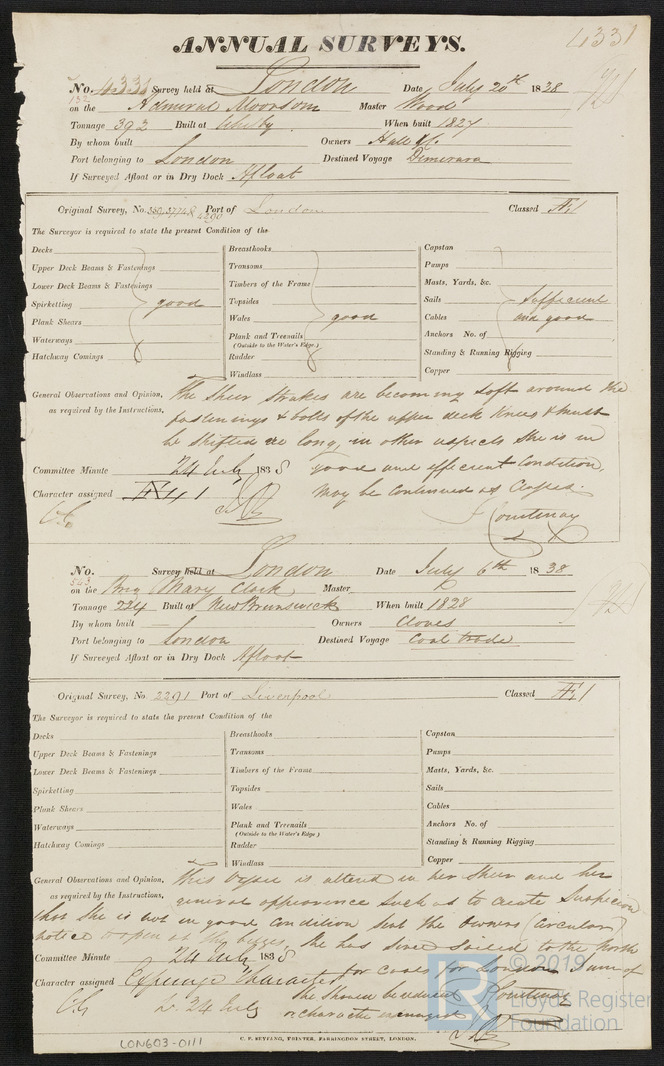 ANNUAL SURVEYS.
4331
No. 4331 Survey held at London Date July 20th 1838
132
on the Admiral Moorsom Master Wood
Tonnage 392 Built at Whitby When built 1827
By whom built Owners Hall &c.
Port belonging to London Destined Voyage Dimerara
If Surveyed Afloat or in Dry Dock Afloat
Original Survey, No. Port of London Classed Æ1
4290
The Surveyor is required to state the present Condition of the
Decks Breasthooks Capstan
Upper Deck Beams & Fastenings Transoms Pumps
Lower Deck Beams & Fastenings Timbers of the Frame Masts, Yards, &c.
Spirketting good Topsides Sails Sufficient
Plank Shears Wales good Cables and good
Waterways Plank and Treenails Anchors No. of
(Outside to the Water's Edge.)
Hatchway Comings Rudder Standing & Running Rigging
Windlass Copper
General Observations and Opinion, The Sheer Strakes are becoming soft around the
as required by the Instructions, fastenings & bolts of the upper deck Knees & must
be shifted ere long, in other respects she is in
Committee Minute 24 July 1838 good and efficient Condition,
Character assigned Æ1 may be Continued as Classed.
Courtenay
No. Survey held at London Date July 6th 1838
543
on the Brig Mary Clock Master
Tonnage 224 Built at New Brunswick When built 1828
By whom built Owners Cloves
Port belonging to London Destined Voyage Coal trade
If Surveyed Afloat or in Dry Dock Afloat
Original Survey, No 2291 Port of Liverpool Classed Æ1
The Surveyor is required to state the present Condition of the
Decks Breasthooks Capstan
Upper Deck Beams & Fastenings Transoms Pumps
Lower Deck Beams & Fastenings Timbers of the Frame Masts, Yards, &c.
Spirketting Topsides Sails
Plank Shears Wales Cables
Waterways Plank and Treenails Anchors No. of
(Outside to the Water's Edge)
Hatchway Comings Rudder Standing & Running Rigging
Windlass Copper
General Observations and Opinion, This Vessel is altered in her Sheer and her
as required by the Instructions, general appearance such as to create Suspicion
that she is not in good Condition sent the Owners (Circular)
notice she has since sailed to the North
Committee Minute 24 July 1838 for coals for London I am of
Character assigned Expunge Character
24 July she should be
or character
Courtenay
© 2019
Lloyd's Register
Foundation
LON603-0111
C. F. SEYFANG, PRINTER, FARRINGDON STREET, LONDON.